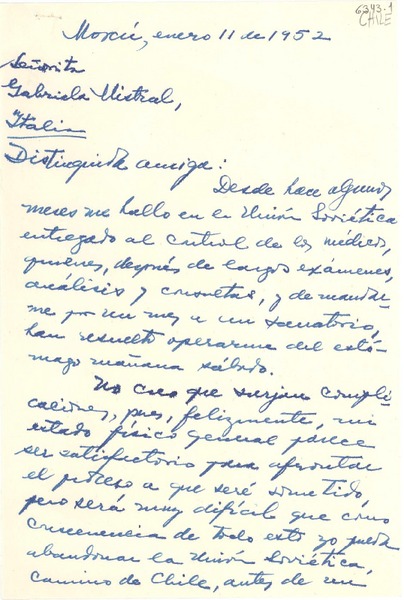 6343.1
CHILE
Moscú, enero 11 de 1952
Señorita
Gabriela Mistral,
Italia
Distinguida amiga:
Desde hace algunos
meses me hallo en la Unión Soviética
entregado al control de los médicos,
quienes, después de largos exámenes,
análisis y consultas, y de mandar-
me por un mes a un sanatorio,
han resuelto operarme del estó-
mago mañana sábado.
No creo que surjan compli-
caciones, pues, felizmente, mi
estado físico general parece
ser satisfactorio para afrontar
el proceso a que seré sometido,
pero será muy difícil que como
consecuencia de todo esto yo pueda
abandonar la Unión Soviética,
camino de Chile, antes de un